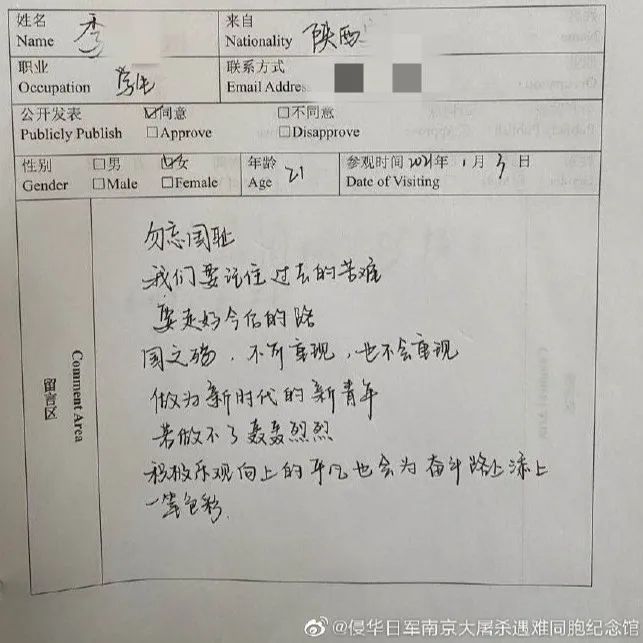 姓名 李 来自 陕西
Name Nationality
职业 学生 联系方式
Occupation Email Address
公开发表 ☑同意 □不同意
Publicly Publish □Approve □Disapprove
性别 □男 ☑女 年龄 21 参观时间 2021年 1月 3日
Gender □Male □Female Age Date of Visiting
留言区
Comment Area
勿忘国耻
我们要记住过去的苦难
要走好今后的路
国之殇,不可重现,也不会重现
做为新时代的新青年
若做不了轰轰烈烈
积极乐观向上的平凡也会为奋斗路上添上
一笔色彩.
@侵华日军南京大屠杀遇难同胞纪念馆